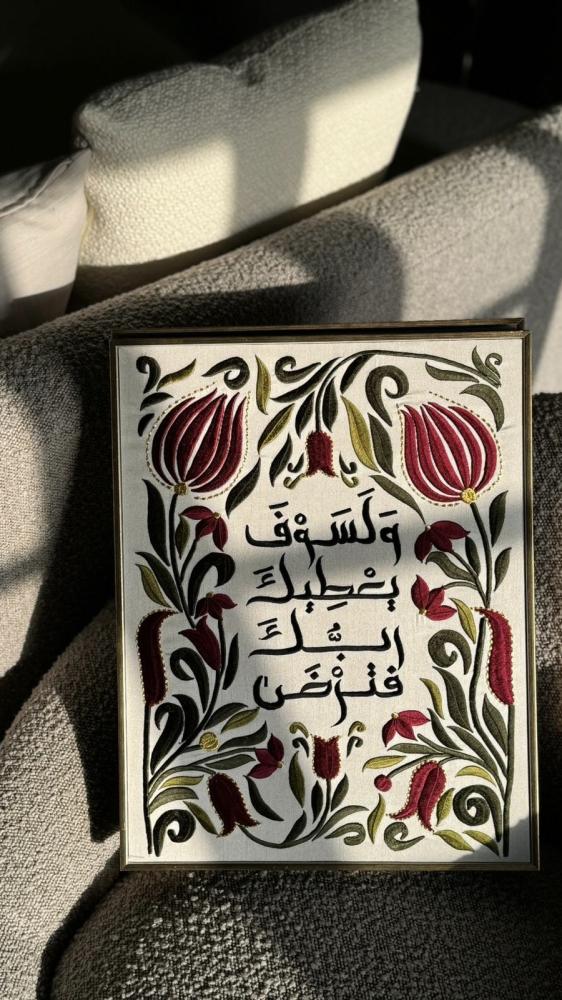 وَلَسَوْفَ
يعْطِيكَ
ربُّكَ
فترْضَى